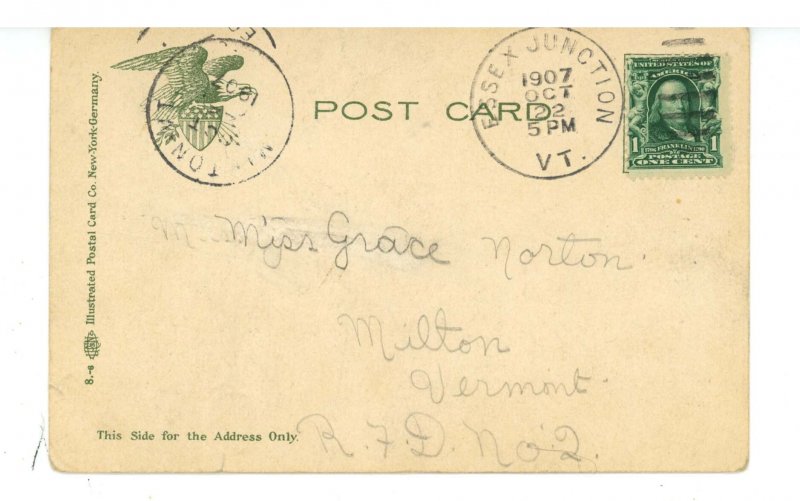 POST CARD
ESSEX JUNCTION
1907
OCT
22
5 PM
VT.
UNITED STATES OF
AMERICA
1 FRANKLIN 1
POSTAGE
ONE CENT
MILTON
Miss Grace Norton
Milton
Vermont
R. F. D. No 2.
This Side for the Address Only.
8.-6 Illustrated Postal Card Co. New-York-Germany.